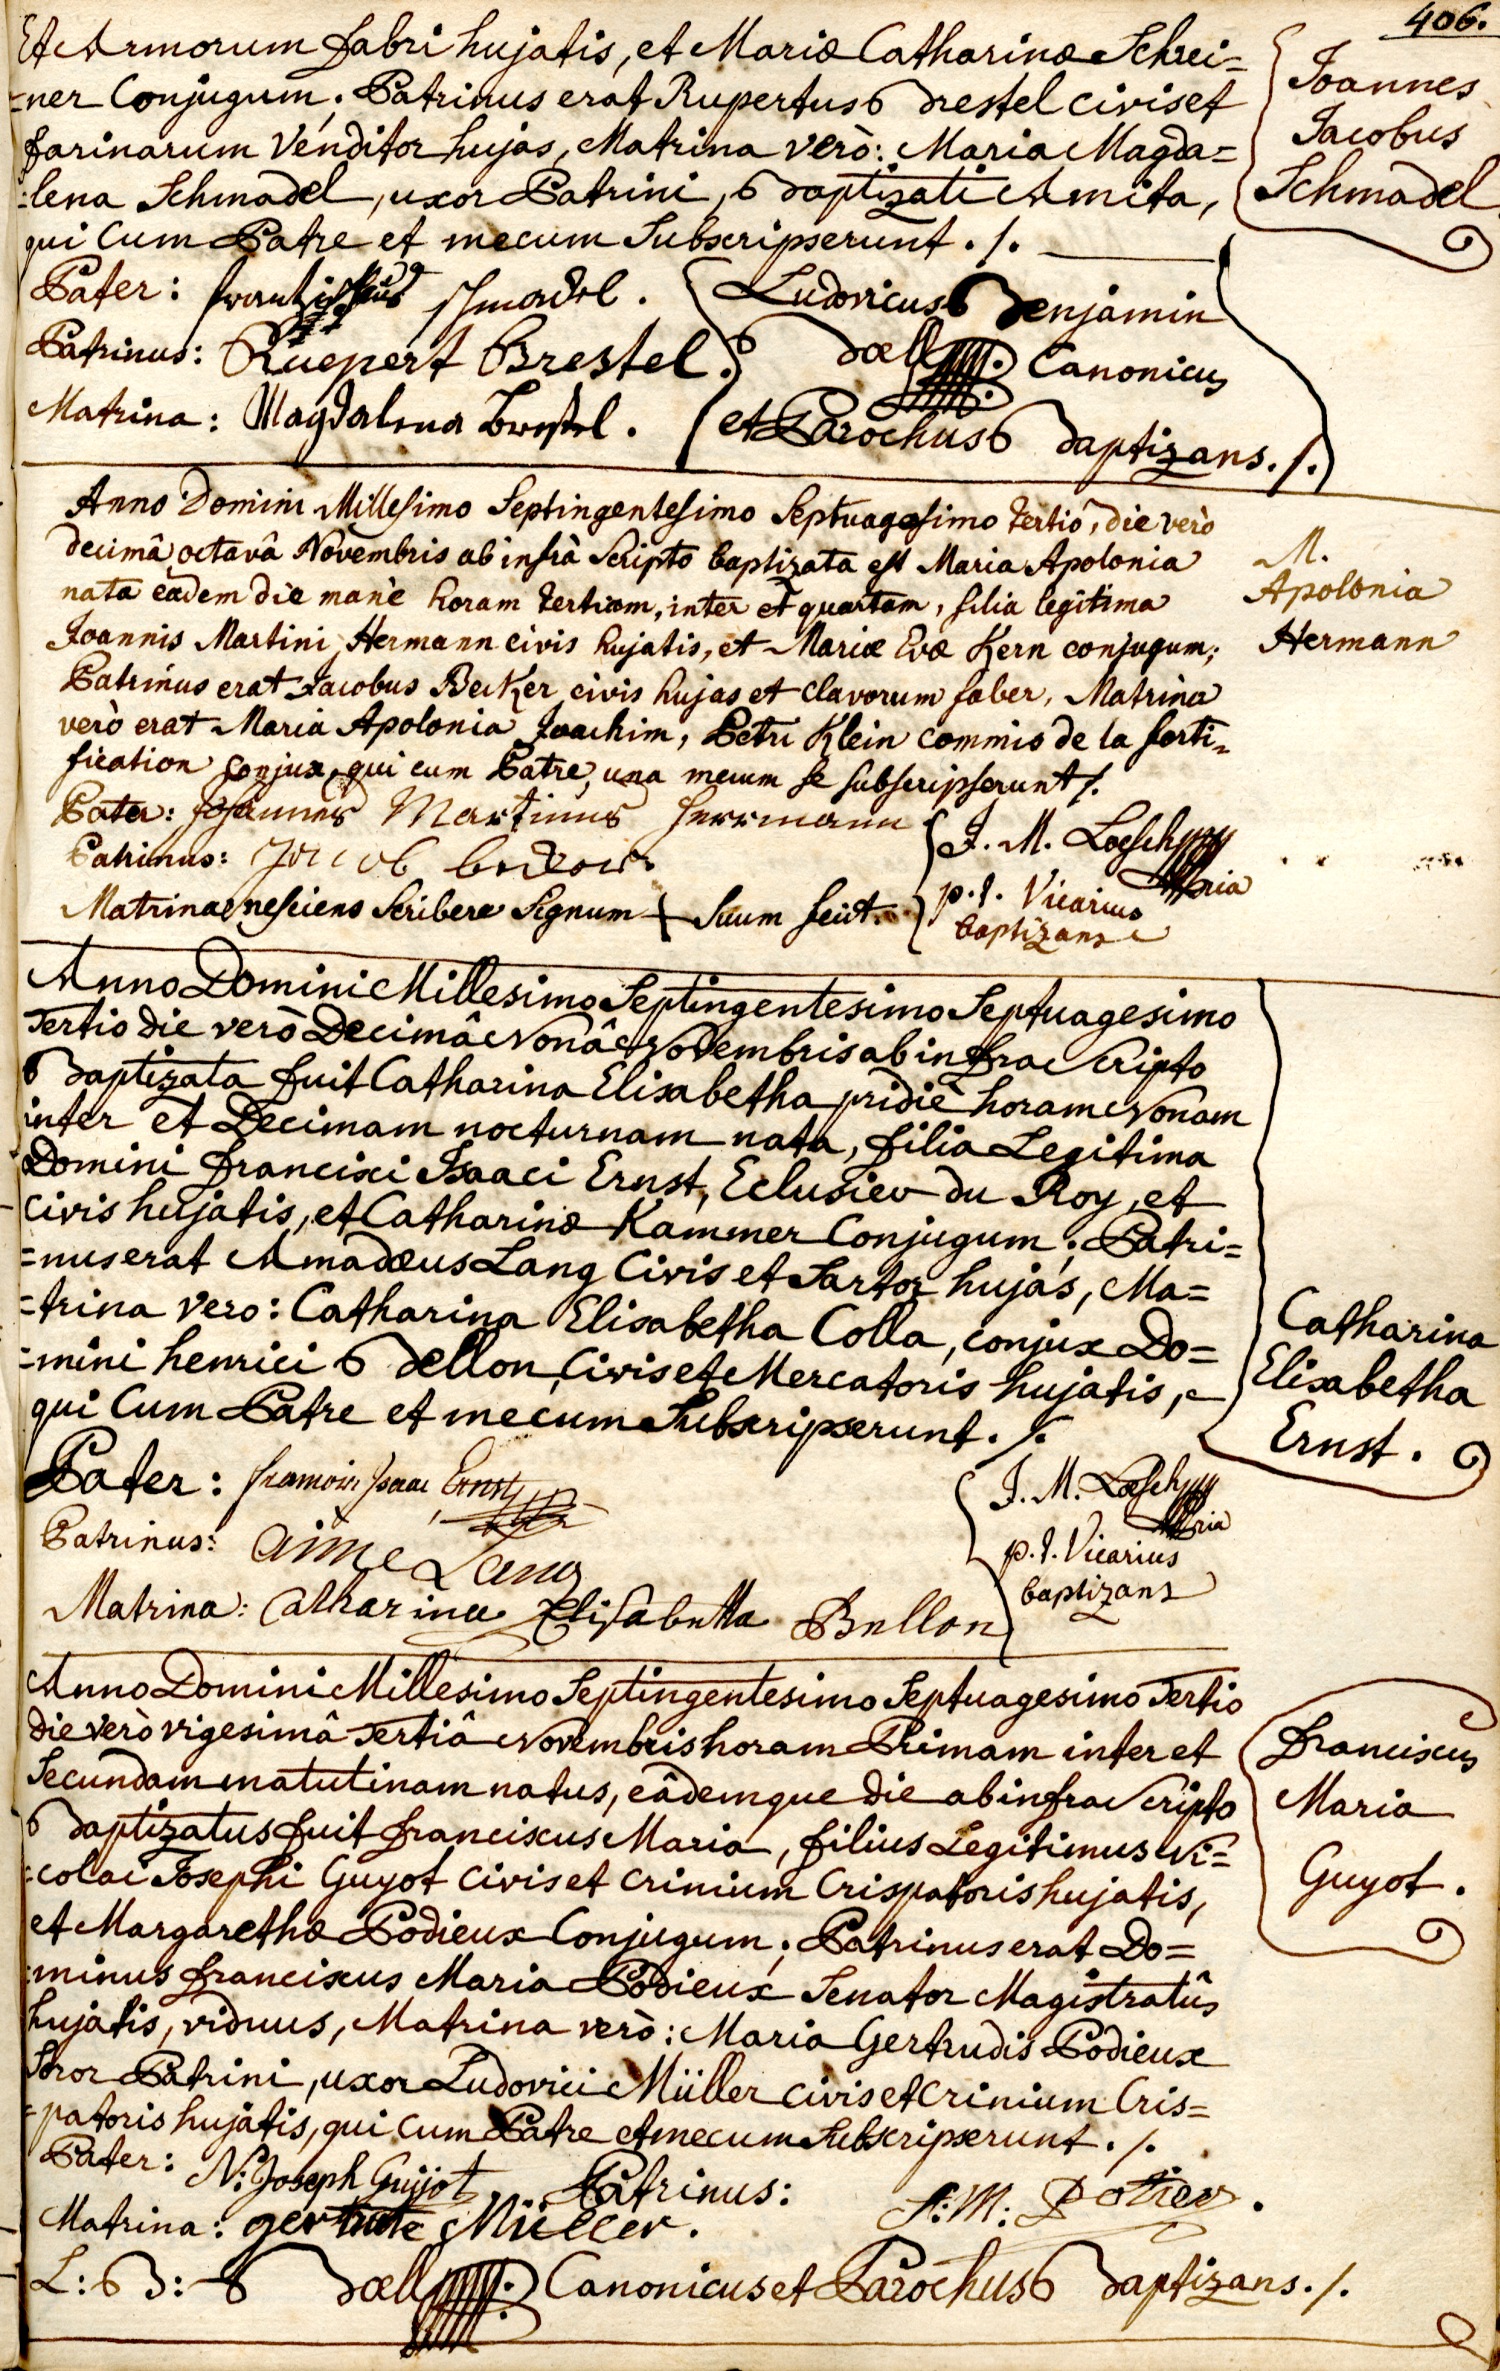 406.
Et Armorum fabri hujatis, et Mariæ Catharinæ Schrei=
=ner Conjugum; Patrinus erat Rupertus Brestel civis et
farinarum Venditor hujas, Matrina verò: Maria Magda=
=lena Schmadel, uxor Patrini, Baptizati Amita,
qui Cum Patre et mecum Subscripserunt ./.
Joannes
Jacobus
Schmadel
Pater: frantziskus schmadel.
Patrinus: Ruepert Brestel.
Matrina: Magdalena Brestel.
Ludovicus Benjamin
Bœll Canonicus
et Parochus Baptizans ./.
Anno Domini Millesimo Septingentesimo Septuagesimo tertio, die verò
decimâ octavâ Novembris ab infrà Scripto baptizata est Maria Apolonia
nata eâdem die manè horam tertiam, inter et quartam, filia legitima
Joannis Martini Hermann civis hujatis, et Mariæ Evæ Kern conjugum;
Patrinus erat Jacobus Becker civis hujas et clavorum faber, Matrina
verò erat Maria Apolonia Joachim, Petri Klein commis de la forti=
fication conjux, qui cum Patre, una mecum se subscripserunt ./.
M.
Apolonia
Hermann
Pater: Johannes Martinus Herrmann
Patrinus: Jacob becker
Matrina nesciens Scribere Signum + Suum fecit.
J. M. Loesch
p. t. Vicarius
baptizans
Anno Domini Millesimo Septingentesimo Septuagesimo
Tertio die verò Decimâ Nonâ Novembris ab infra Scripto
Baptizata fuit Catharina Elisabetha pridiè horam Nonam
inter et Decimam nocturnam nata, filia Legitima
Domini francisci Isaaci Ernst, Eclusier du Roy, et
Civis hujatis, et Catharinæ Kammer Conjugum; Patri=
=nus erat Amadæus Lang Civis et Sartor hujas, Ma=
=trina vero: Catharina Elisabetha Colla, conjux Do=
=mini henrici Bellon, Civis et Mercatoris hujatis,
qui Cum Patre et mecum Subscripserunt ./.
Catharina
Elisabetha
Ernst.
Pater: francois Isaac Ernst
Patrinus: aime Lang
Matrina: Catharina Elisabetta Bellon
J. M. Loesch
p. t. Vicarius
baptizans
Anno Domini Millesimo Septingentesimo Septuagesimo Tertio
die verò vigesimâ Tertiâ Novembris horam Primam inter et
Secundam matutinam natus, eâdemque die ab infra Scripto
Baptizatus fuit franciscus Maria, filius Legitimus Ni=
=colai Josephi Guyot civis et crinium Crispatoris hujatis,
et Margarethæ Podieux Conjugum; Patrinus erat Do=
=minus franciscus Maria Podieux Senator Magistratûs
hujatis, viduus, Matrina verò: Maria Gertrudis Podieux
Soror Patrini, uxor Ludovici Müller civis et Crinium Cris=
=patoris hujatis, qui cum Patre et mecum Subscripserunt ./.
franciscus
Maria
Guyot.
Pater: N: Joseph Guijot Patrinus: f: M: Potieux.
Matrina: gertrute Müller.
L: B: Bœll Canonicus et Parochus Baptizans ./.